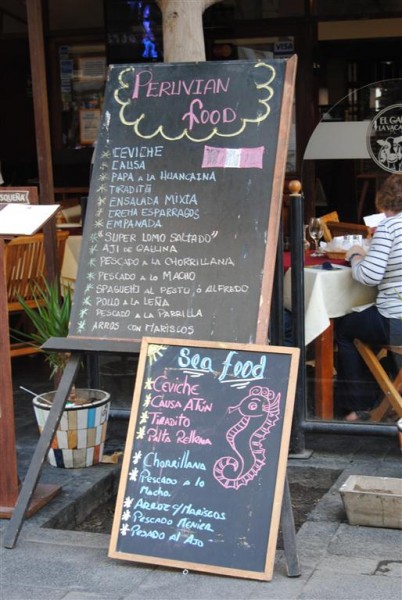 Peruvian
food
Ceviche
Causa
Papa a la Huancaina
Tiradito
Ensalada Mixta
Crema Esparragos
Empanada
"Super Lomo Saltado"
Aji de Gallina
Pescado a la Chorrillana
Pescado a lo Macho
Spagueho al Pesto ó Alfredo
Pollo a la Leña
Pescado a la Parrilla
Arros con Mariscos
Sea food
Ceviche
Causa Atún
Tiradito
Palta Rellena
Chorrillana
Pescado a lo
Macho
Arroz c/Mariscos
Pescado Menier
Pesado al Ajo
VISA
EL GA
LA VACA